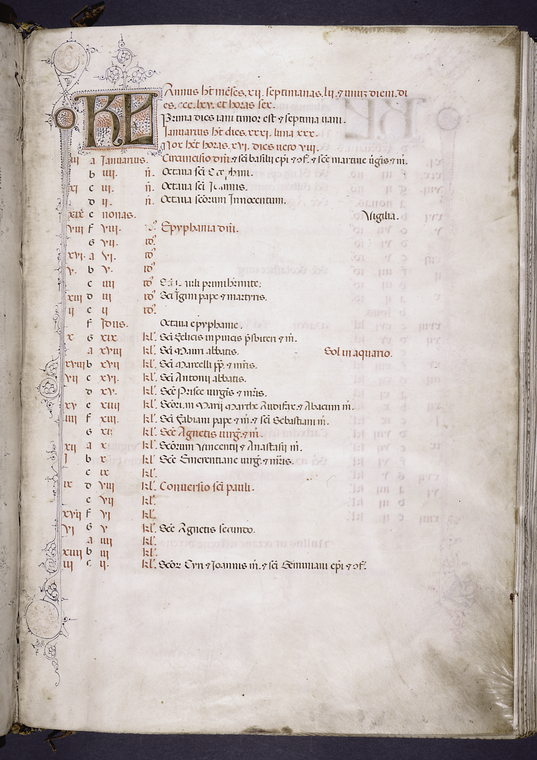 KL Annus ht menses. xii. septimanas. lii. 7 unu diem. di
es. ccc. lxv. et horas sex.
Prima dies iani timor est 7 septima uani.
Ianuarius ht dies. xxxi. luna xxx.
Nox ht horas. xvi. dies uero viii.
iii a Ianuarius. Circuncisio dni. 7 sci basilii epi 7 9f. 7 sce martine ugis 7 m.
b iiii n. Octaua sci
xi c iii n. Octaua sci Ioannis.
d ii n. Octaua scorum Innocentum.
xix e nonas. Vigilia.
viii f viii Epyphania dni.
g vii id9
xvi a vi id9
v b v id9
c iiii id9 pauli primi heremite.
xiii d iii id9 Sci Igini pape 7 martyris.
ii e ii id9
f Idus. Octaua epyphanie.
x g xix kl. Sci Felicis in pincis psbiteri 7 m.
a xviii kl. Sci Mauri abbatis. Sol in aquario.
xviii b xvii kl. Sci Marcelli pp. 7 mris.
vii c xvi kl. Sci Antonii abbatis.
d xv kl. Sce Prisce uirgis 7 mris.
xv e xiiii kl. Scorum Marii Marthe Audifax 7 Abacum m.
iiii f xiii kl. Sci Fabiani pape 7 m. 7 sci Sebastiani m.
g xii kl. Sce Agnetis uirg. 7 m.
xii a xi kl. Scorum Vincentii 7 Anastasii m.
i b x kl. Sce Emerentiane uirg. 7 mris.
c ix kl.
ix d viii kl. Conuersio sci pauli.
e vii kl.
xvii f vi kl.
vi g v kl. Sce Agnetis secundo.
a iiii kl.
xiiii b iii kl.
iii c ii kl. Scor Cyri 7 Ioannis m. 7 sci Geminiani epi 7 9f.